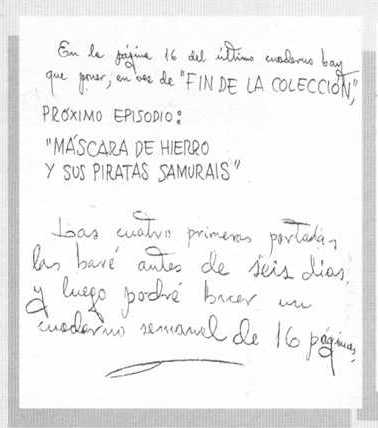 En la página 16 del último cuaderno hay
que poner, en vez de "FIN DE LA COLECCIÓN",
PRÓXIMO EPISODIO:
"MÁSCARA DE HIERRO
Y SUS PIRATAS SAMURAIS"
Las cuatro primeras portadas
las haré antes de seis días,
y luego podré hacer un
cuaderno semanal de 16 páginas.